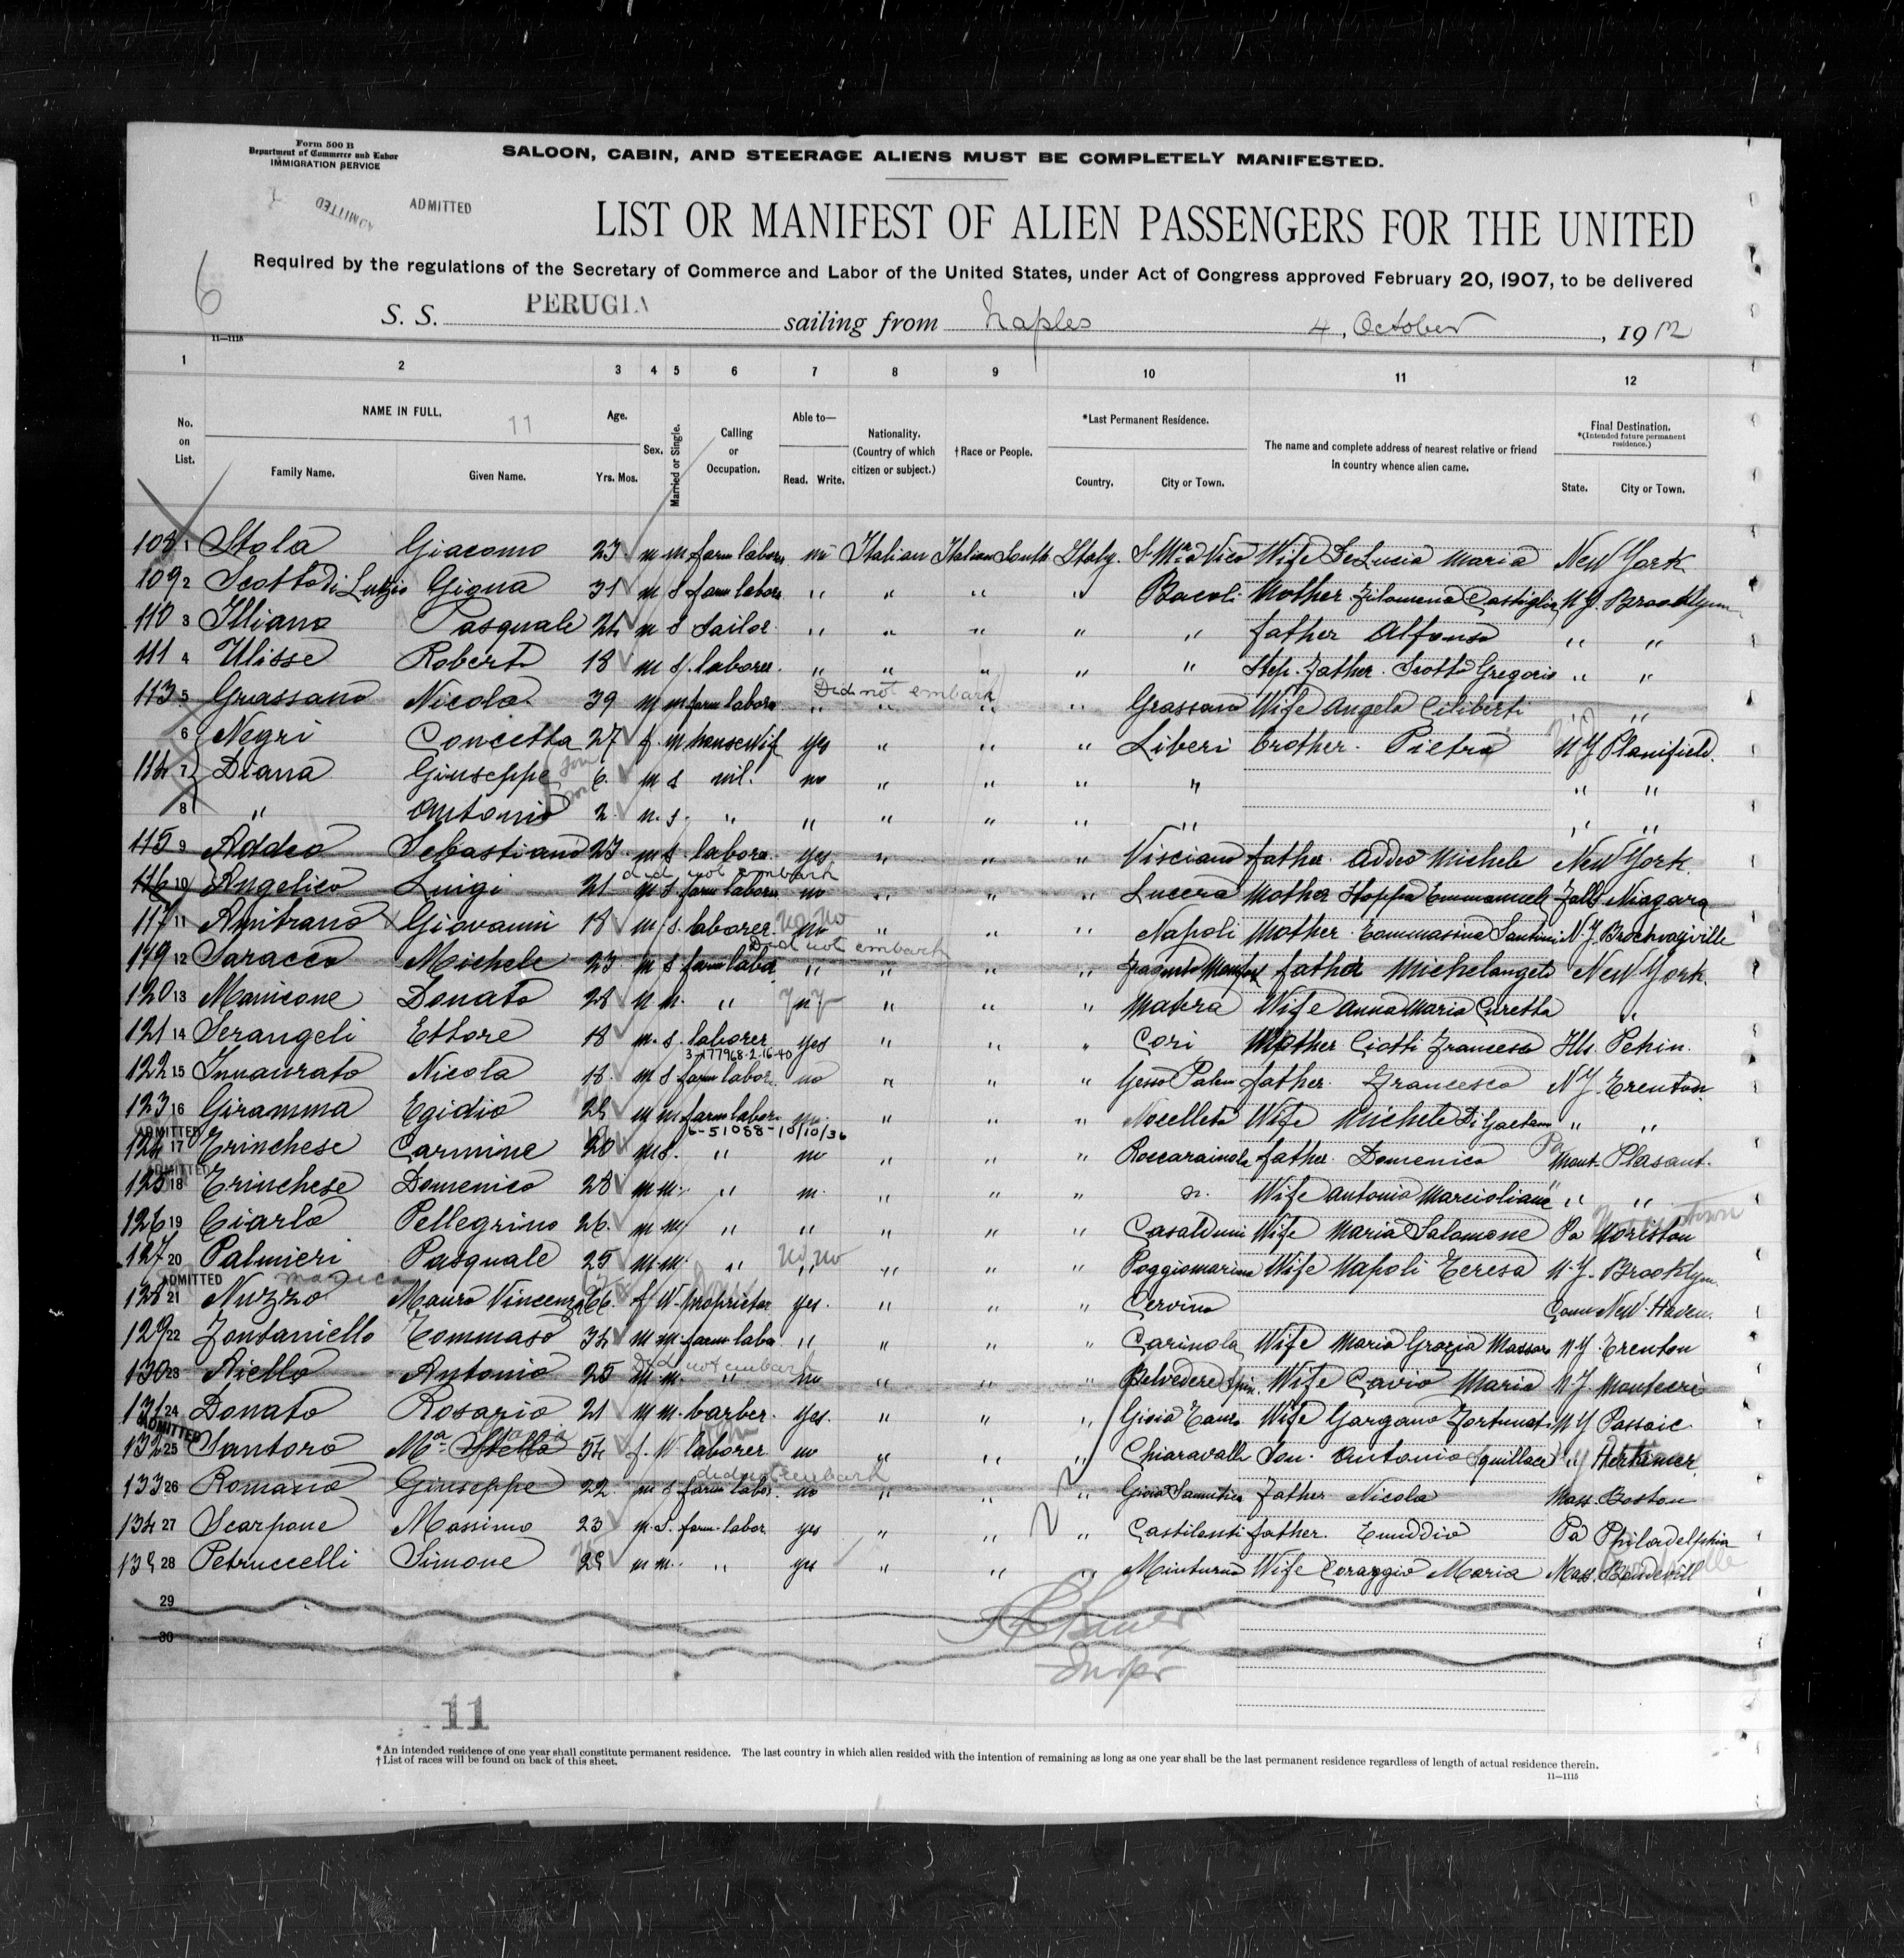 Form 500 B
Department of Commerce and Labor
IMMIGRATION SERVICE
SALOON, CABIN, AND STEERAGE ALIENS MUST BE COMPLETELY MANIFESTED.
ADMITTED ADMITTED
LIST OR MANIFEST OF ALIEN PASSENGERS FOR THE UNITED
Required by the regulations of the Secretary of Commerce and Labor of the United States, under Act of Congress approved February 20, 1907, to be delivered
6
S. S. PERUGIA sailing from Naples 4, October, 1912
11—1115
1 2 3 4 5 6 7 8 9 10 11 12
No. on List. NAME IN FULL. 11 Family Name. Given Name. Age. Yrs. Mos. Sex. Married or Single. Calling or Occupation. Able to— Read. Write. Nationality. (Country of which citizen or subject.) †Race or People. *Last Permanent Residence. Country. City or Town. The name and complete address of nearest relative or friend in country whence alien came. Final Destination. *(Intended future permanent residence.) State. City or Town.
108 1 Stola Giacomo 23 m m farm labore no Italian Italian South Italy. Wife DeLucia Maria New York
109 2 Scotto di Luzio 31 m s farm labore " " " " Bacoli Mother Filomena Castiglia N.Y. Brooklynn
110 3 Illiano Pasquale 24 m s Sailor " " " " " father Alfonso " "
111 4 Ulisse Roberto 18 m s. laborer. " " " " " Step. Father. Scotto Gregorio " "
113 5 Grassano Nicola 39 m m farm labore " Did not embark " " " Grassano Wife Angela Ciliberti " "
6 Negri Concetta 27 f. m housewife yes " " " Liberi brother. Pietro N.J Planifield.
114 7 Diana Giuseppe son 6. m s nil. no " " " " " "
8 " Antonio son 2. m. s. " " " " " " " "
115 9 Addeo Sebastiano 23 m s. labore. yes " " " Visciano father. Addeo Michele New York.
did not embark
116 10 Angelico Luigi 21 m s farm labore no " " " Lucera Mother Falls Niagara
117 11 Amitrano Giovanni 18 m s. laborer. no no no " " " Napoli Mother. Tommasina Santini N.Y.
119 12 Saracco Michele 23 m s farm labor " Did not embark " " " father Michelangelo New York.
120 13 Manicone Donato 28 m m. " " " " Matera Wife Anna Maria "
121 14 Serangeli Ettore 18 m. s. laborer yes " " " Cori Mother Ciotti Francesca Ills.
3-177968-2-16-40
122 15 Innaurato Nicola 18. m s farm labor. no " " " Gesso Palena father. Francesco N.J. Trenton.
123 16 Giramma Egidio 28 m m farm labor. no. " " " Nocelleto Wife Michela Di Gaetano " "
6-51088-10/10/36
ADMITTED
124 17 Trinchese Carmine 20 m s. " no " " " Roccarainola father. Domenico Pa Mont. Plasant.
ADMITTED
125 18 Trinchese Domenico 28 m m. " " " " Wife Antonia " "
126 19 Ciarlo Pellegrino 26 m m " " " " " Casalduni Wife Maria Salomone Pa Norriston
127 20 Palmieri Pasquale 25 m m. " no no " " " " Poggiomarino Wife Napoli Teresa N.Y. Brooklyn.
ADMITTED
128 21 Nuzzo Mauro Vincenza 66 f W. Proprietor yes. " " " Cervino Conn New Haven.
129 22 Fontaniello Tommaso 34 m m. farm labo " " " " Carinola Wife Maria Grazia Massaro N.J. Trenton
130 23 Aiello Antonio 25 Did not embark m m. " no " " " Belvedere Spin. Wife Cavio Maria N.J.
131 24 Donato Rosario 21 m m. barber. yes. " " " Gioia Tauro Wife Gargano Fortunata N.J Passaic
ADMITTED
132 25 Santoro Mª Stella 54 f. W laborer no " " " Chiaravalle Son. Antonio Squillace Herkimer
133 26 Romano Giuseppe 22 m s farm labor. did not embark no " " " Gioia Sannitica Father Nicola Mass. Boston
134 27 Scarpone Massimo 23 m. S. farm labor yes " " " Castilenti father. Emiddio Pa Philadelphia
135 28 Petruccelli Simone 28 m m. " yes " " " Minturno Wife Coraggio Maria Mass.
29
30
Inspr
11
*An intended residence of one year shall constitute permanent residence. The last country in which alien resided with the intention of remaining as long as one year shall be the last permanent residence regardless of length of actual residence therein.
†List of races will be found on back of this sheet.
11—1115